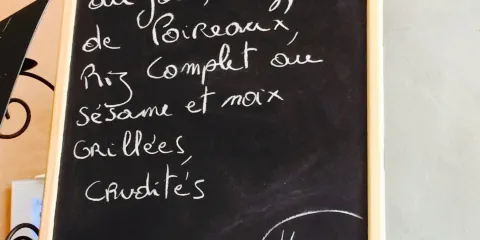 du jour,
de Poireaux,
Riz complet au
sésame et noix
Grillées,
Crudités